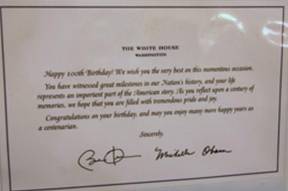 THE WHITE HOUSE
WASHINGTON
Happy 100th Birthday! We wish you the very best on this momentous occasion.
You have witnessed great milestones in our Nation's history, and your life
represents an important part of the American story. As you reflect upon a century of
memories, we hope that you are filled with tremendous pride and joy.
Congratulations on your birthday, and may you enjoy many more happy years as
a centenarian.
Sincerely,
Michelle Obama